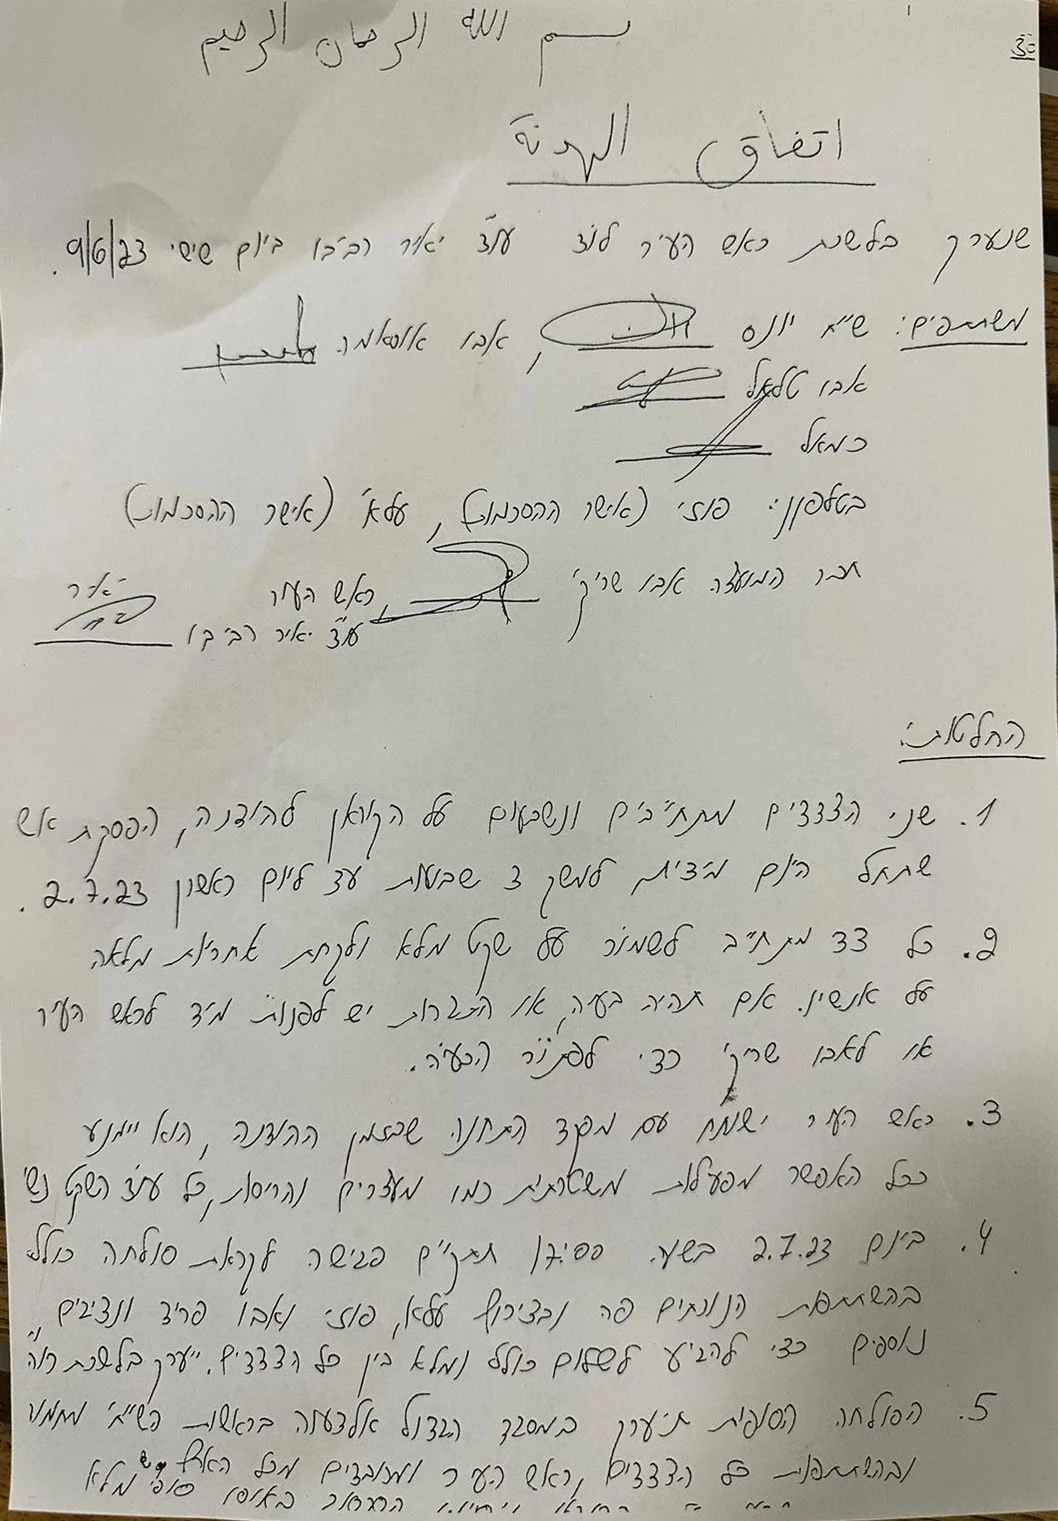 בס״ד
بسم الله الرحمان الرحيم
اتفاق الهدنة
שנערך בלשכת ראש העיר לוד עו״ד יאיר רביבו ביום שישי 9/6/23.
משתתפים: שייח יונס, אבו אוסאמה
אבו טלאל
כמאל
בטלפון: פוזי (אישר ההסכמות), עלא (אישר ההסכמות)
חבר המועצה אבו שריקי, ראש העיר
עו״ד יאיר רביבו
יאיר
החלטות:
1. שני הצדדים מתחייבים ונשבעים על הקוראן להודנה, הפסקת אש
שתחל היום מיידית למשך 3 שבועות עד ליום ראשון 2.7.23.
2. כל צד מתחייב לשמור על שקט מלא ולקחת אחריות מלאה
על אנשיו. אם תהיה בעיה, או התגרות יש לפנות מיד לראש העיר
או לאבו שריקי כדי לפתור הבעיה.
3. ראש העיר ישוחח עם מפקד התחנה שבזמן ההודנה, הוא יימנע
ככל האפשר מפעילות משטרתית כמו מעצרים והריסות, כל עוד השקט נש׳
4. ביום 2.7.23 בשעה 17:00 תתקיים פגישה לקראת סולחה כוללת
בהשתתפות הנוכחים פה ובצירוף עלא, פוזי ואבו פריד ונציגים
נוספים כדי להגיע לשלום כולל ומלא בין כל הצדדים. ייערך בלשכת רוה״ע
5. הסולחה הסופית תיערך במסגד הגדול אלדעווה בראשות השייח׳ מחמוד
ובהשתתפות כל הצדדים, ראש העיר ומכובדים מכל הארץ
באופן סופי מלא